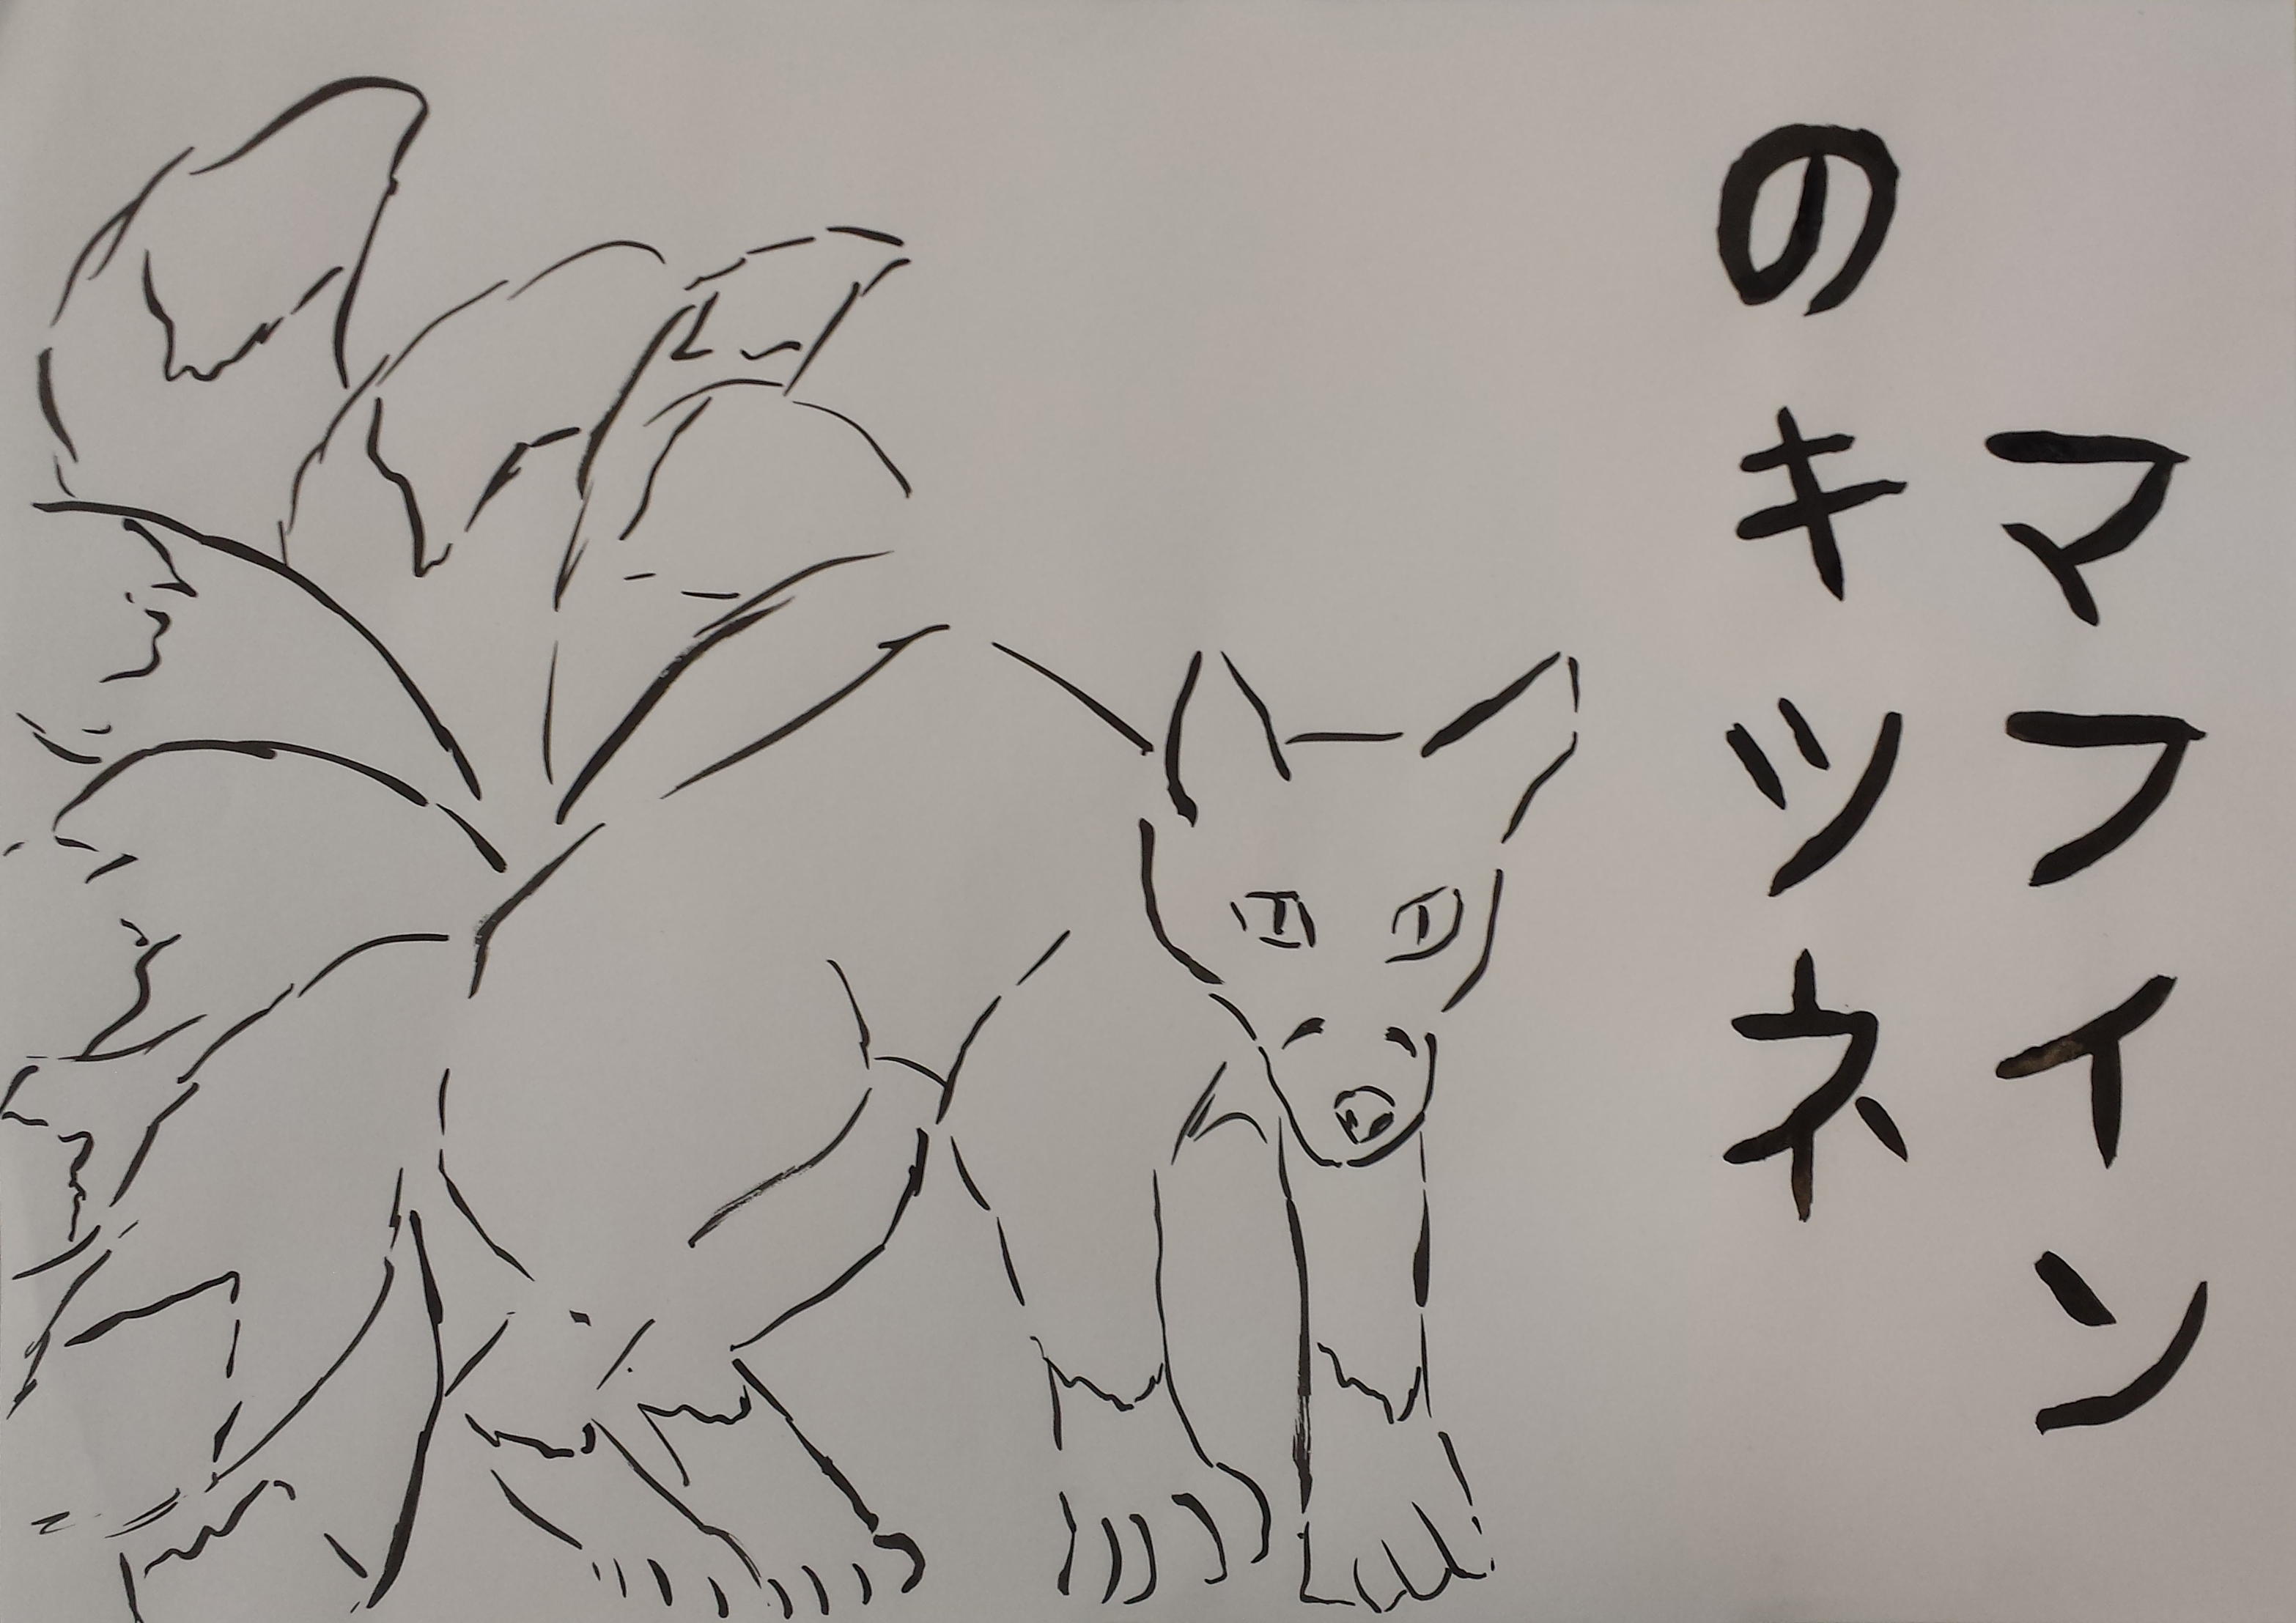 マフィン
のキツネ